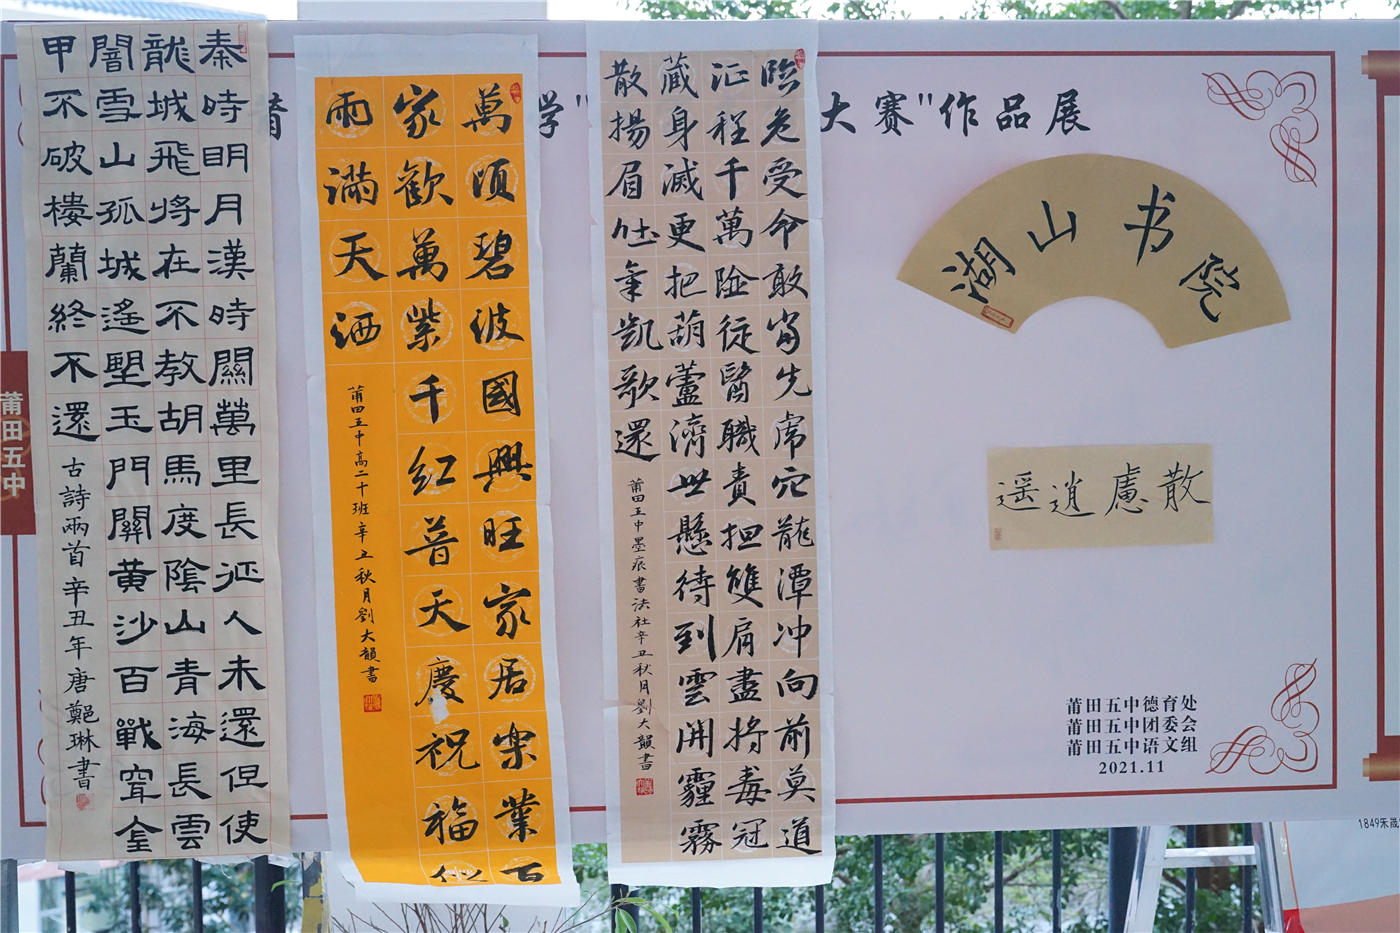 大赛"作品展
秦時明月漢時關萬里長征人未還但使
龍城飛將在不教胡馬度陰山青海長雲
闇雪山孤城遙朢玉門關黄沙百戰穿金
甲不破樓蘭終不還
古詩兩首辛丑年唐鄭琳書
萬頃碧波國興旺家居樂業百
家歡萬紫千紅普天慶祝福似
雨滿天洒
莆田五中高二十班辛丑秋月劉大韻書
臨危受命敢當先虎穴龍潭冲向前莫道
征程千萬險從醫職責担雙肩盡將毒冠
藏身滅更把葫蘆濟世懸待到雲開霾霧
散揚眉吐氣凱歌還
莆田五中墨痕書法社辛丑秋月劉大韻書
湖山书院
散慮逍遥
莆田五中
莆田五中德育处
莆田五中团委会
莆田五中语文组
2021.11